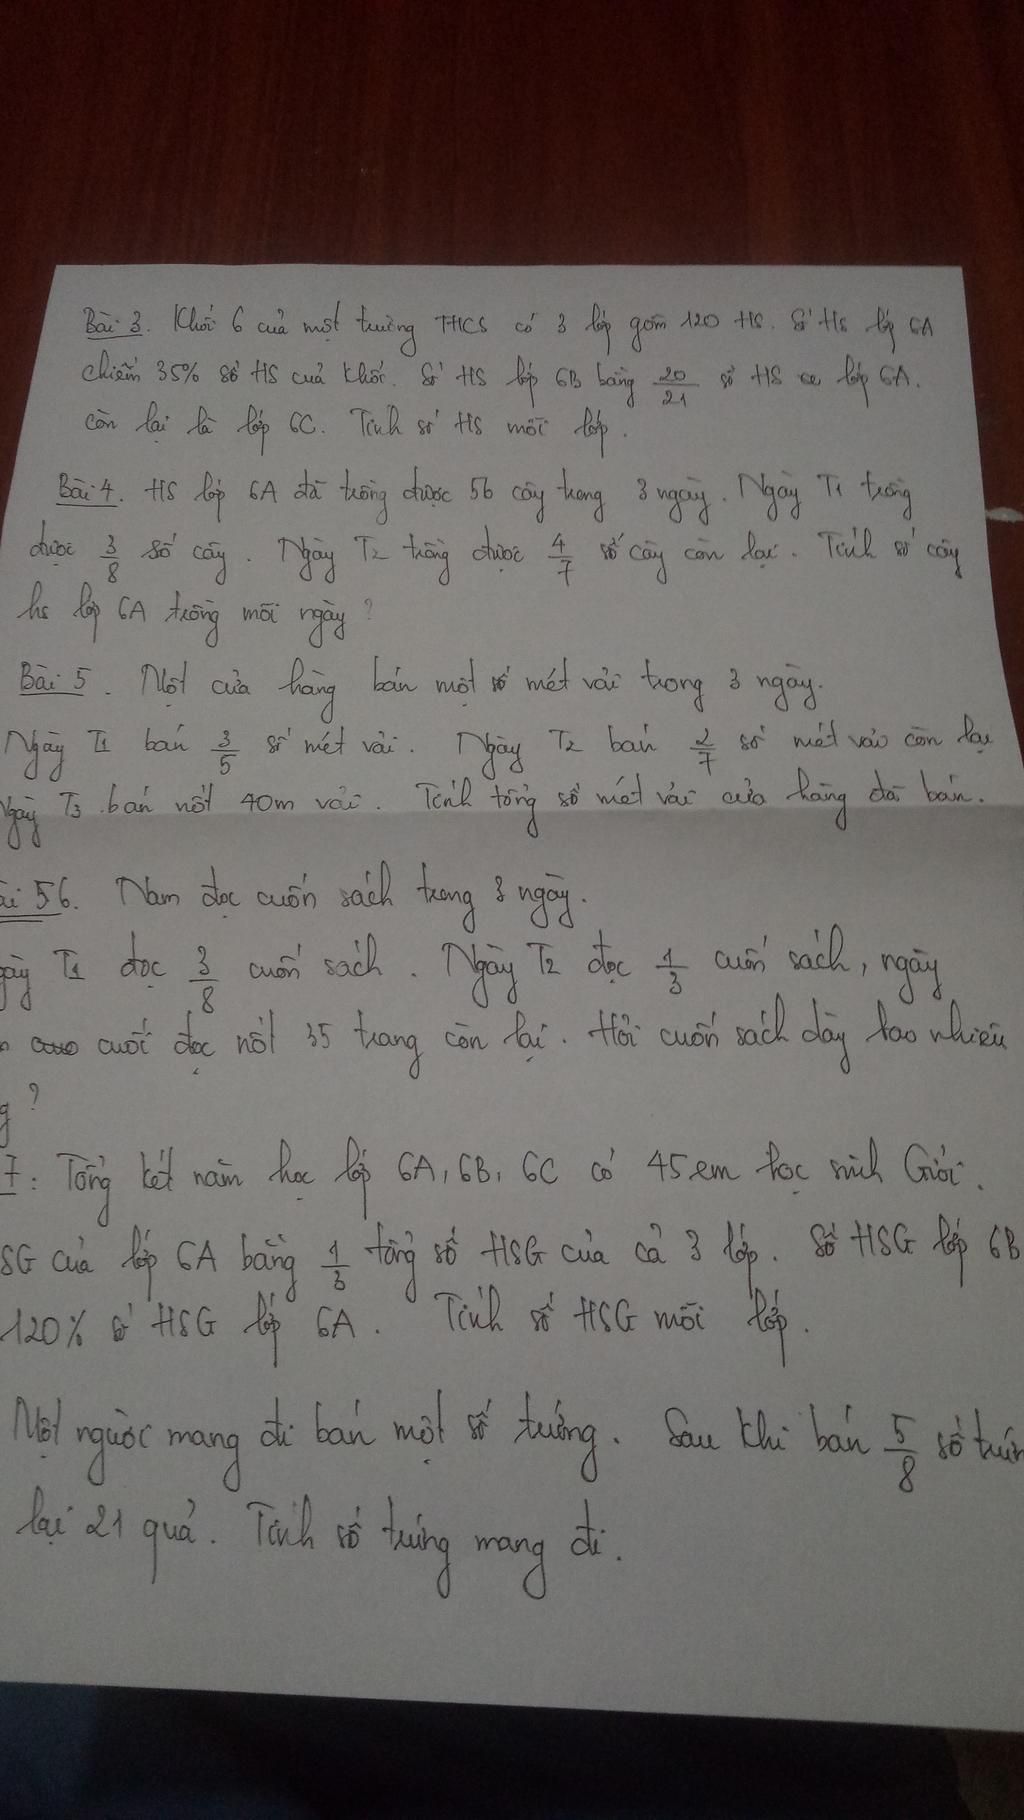 Bài 3. Khối 6 của một trường THCS có 3 lớp gồm 120 HS. Số HS lớp 6A
chiếm 35% số HS của khối. Số HS lớp 6B bằng 20/21 số HS lớp 6A.
còn lại là lớp 6C. Tính số HS mỗi lớp.
Bài 4. HS lớp 6A đã trồng được 56 cây trong 3 ngày. Ngày T1 trồng
được 3/8 số cây. Ngày T2 trồng được 4/7 số cây còn lại. Tính số cây
hs lớp 6A trồng mỗi ngày?
Bài 5. Một cửa hàng bán một số mét vải trong 3 ngày.
Ngày T1 bán 3/5 số mét vải. Ngày T2 bán 2/7 số mét vải còn lại
Ngày T3 bán nốt 40m vải. Tính tổng số mét vải cửa hàng đã bán.
ài 56. Nam đọc cuốn sách trong 3 ngày.
gày T1 đọc 3/8 cuốn sách. Ngày T2 đọc 1/3 cuốn sách, ngày
cuối đọc nốt 35 trang còn lại. Hỏi cuốn sách dày bao nhiêu
g?
7: Tổng kết năm học lớp 6A, 6B, 6C có 45 em học sinh Giỏi.
SG của lớp 6A bằng 1/3 tổng số HSG của cả 3 lớp. Số HSG lớp 6B
120% số HSG lớp 6A. Tính số HSG mỗi lớp.
Một người mang đi bán một số trứng. Sau khi bán 5/8 số trứn
lại 21 quả. Tính số trứng mang đi.